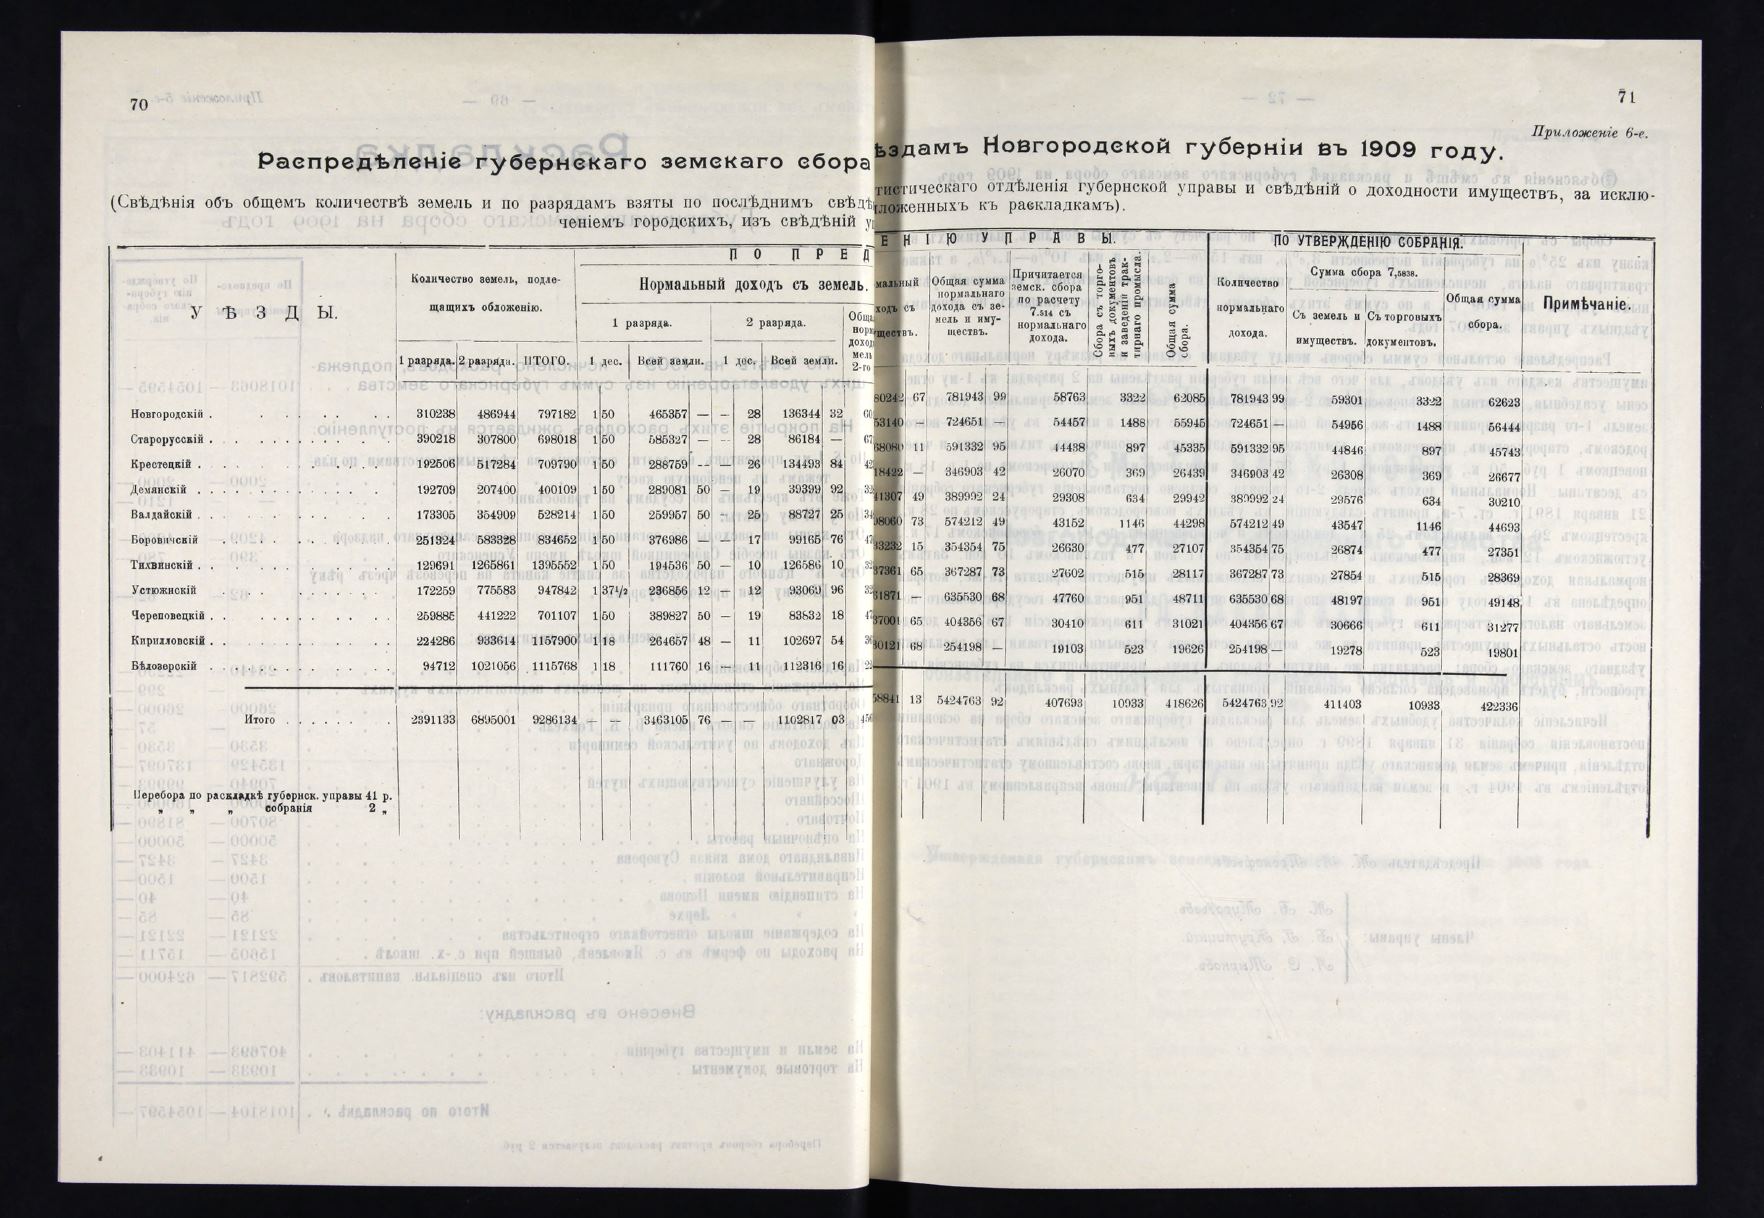 70
Распредѣленіе губернскаго земскаго сбора
(Свѣдѣнія объ общемъ количествѣ земель и по разрядамъ взяты по послѣднимъ
ченіемъ городскихъ, изъ свѣдѣній
УѢЗДЫ.
Количество земель, подлежащихъ обложенію.
ПО ПРЕД
Нормальный доходъ съ земель.
1 разряда. 2 разряда.
1 разряда. 2 разряда. ИТОГО. 1 дес. Всей земли. 1 дес. Всей земли.
Новгородскій . 310238 486944 797182 1 50 465357 — — 28 136344 32
Старорусскій . 390218 307800 698018 1 50 585327 — — 28 86184 —
Крестецкій . 192506 517284 709790 1 50 288759 — — 26 134493 84
Демянскій . 192709 207400 400109 1 50 289081 50 — 19 39399 92
Валдайскій . 173305 354909 528214 1 50 259957 50 — 25 88727 25
Боровичскій 251324 583328 834652 1 50 376986 — — 17 99165 76
Тихвинскій . 129691 1265861 1395552 1 50 194536 50 — 10 126586 10
Устюжнскій 172259 775583 947842 1 37½ 236856 12 — 12 93069 96
Череповецкій . 259885 441222 701107 1 50 389827 50 — 19 83832 18
Кирилловскій . 224286 933614 1157900 1 18 264657 48 — 11 102697 54
Бѣлозерскій 94712 1021056 1115768 1 18 111760 16 — 11 112316 16
Итого . 2391133 6895001 9286134 — — 3463105 76 — — 1102817 03
Перебора по раскладкѣ губернск. управы 41 р.
„ „ „ собранія 2 „
71
Приложеніе 6-е.
ѣздамъ Новгородской губерніи въ 1909 году.
тистическаго отдѣленія губернской управы и свѣдѣній о доходности имуществъ, за исклю-
ложенныхъ къ раскладкамъ).
ЕНІЮ УПРАВЫ.
ПО УТВЕРЖДЕНІЮ СОБРАНІЯ.
Общая сумма нормальнаго дохода съ земель и имуществъ.
Причитается земск. сбора по расчету 7.514 съ нормальнаго дохода.
Сбора съ торговыхъ документовъ и заведеній трактирнаго промысла.
Общая сумма сбора.
Количество нормальнаго дохода.
Сумма сбора 7,5838.
Съ земель и имуществъ. Съ торговыхъ документовъ. Общая сумма сбора.
Примѣчаніе.
80242 67 781943 99 58763 3322 62085 781943 99 59301 3322 62623
53140 — 724651 — 54457 1488 55945 724651 — 54956 1488 56444
68080 11 591332 95 44438 897 45335 591332 95 44846 897 45743
18422 — 346903 42 26070 369 26439 346903 42 26308 369 26677
41307 49 389992 24 29308 634 29942 389992 24 29576 634 30210
98060 73 574212 49 43152 1146 44298 574212 49 43547 1146 44693
33232 15 354354 75 26630 477 27107 354354 75 26874 477 27351
37361 65 367287 73 27602 515 28117 367287 73 27854 515 28369
61871 — 635530 68 47760 951 48711 635530 68 48197 951 49148
37001 65 404356 67 30410 611 31021 404356 67 30666 611 31277
30121 68 254198 — 19103 523 19626 254198 — 19278 523 19801
58841 13 5424763 92 407693 10933 418626 5424763 92 411403 10933 422336